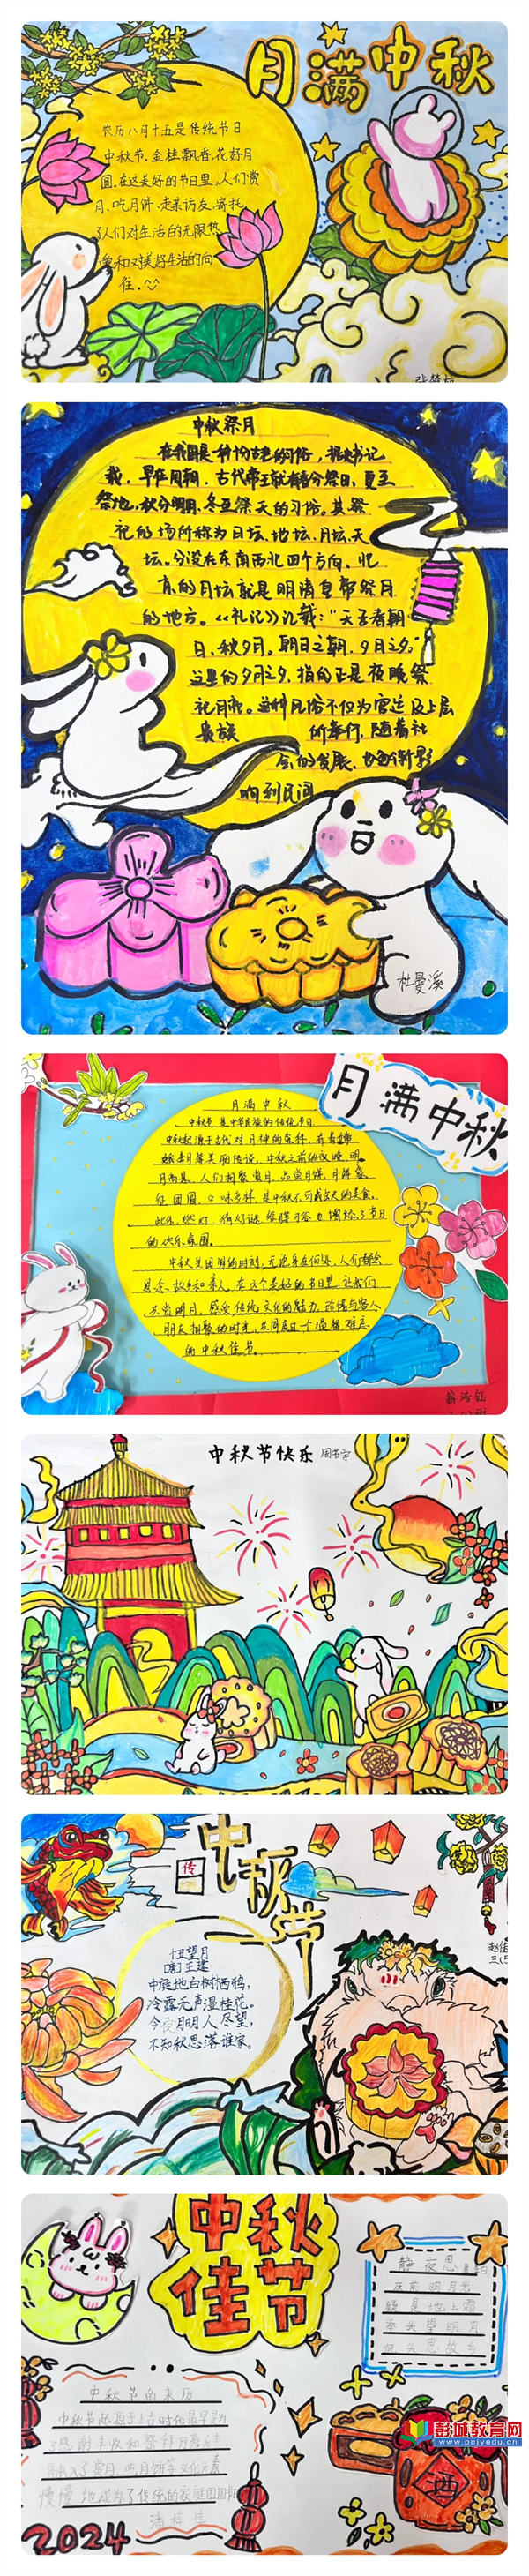 月满中秋
农历八月十五是传统节日
中秋节.金桂飘香,花好月
圆.在这美好的节日里,人们赏
月、吃月饼、走亲访友、寄托
了人们对生活的无限热
爱和对美好生活的向
往.
中秋祭月
在我国是一种十分古老的习俗，据史书记
载，早在周朝，古代帝王就有春分祭日、夏至
祭地、秋分祭月、冬至祭天的习俗。其祭
祀的场所称为日坛、地坛、月坛、天
坛。分设在东南西北四个方向。北
京的月坛就是明清皇帝祭月
的地方。《礼记》记载："天子春朝
日、秋夕月。朝日之朝，夕月之夕。"
这里的夕月之夕，指的正是夜晚祭
祀月亮。这种风俗不仅为宫廷及上层
贵族 所奉行，随着社
会的发展，也逐渐影
响到民间
杜曼溪
月满中秋
月满中秋
中秋节是中华民族的传统节日
的欢乐氛围。
中秋是团圆的时刻,无论身在何处,人们都会
思念故乡和亲人。在这个美好的节日里,让我们
共赏明月,感受传统文化的魅力,珍惜与家人
朋友相聚的时光,共同度过一个温馨难忘
的中秋佳节。
中秋节快乐
中秋节
传
十五望月
[唐]王建
中庭地白树栖鸦，
冷露无声湿桂花。
今夜月明人尽望，
不知秋思落谁家。
中秋
佳节
静夜思
床前明月光
疑是地上霜
举头望明月
低头思故乡
中秋节的来历
中秋节起源于上古时代最早是为
了感谢丰收和祭拜月亮
慢慢地成为了传统的家庭团圆
酒
2024
彭城教育网
www.pcjyedu.cn